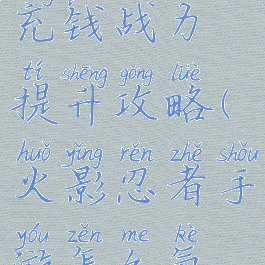 充钱战力
tí shēng gōng lüè
提升攻略(
huǒ yǐng rěn zhě shǒu
火影忍者手
yóu zěn me kè
游怎么氪